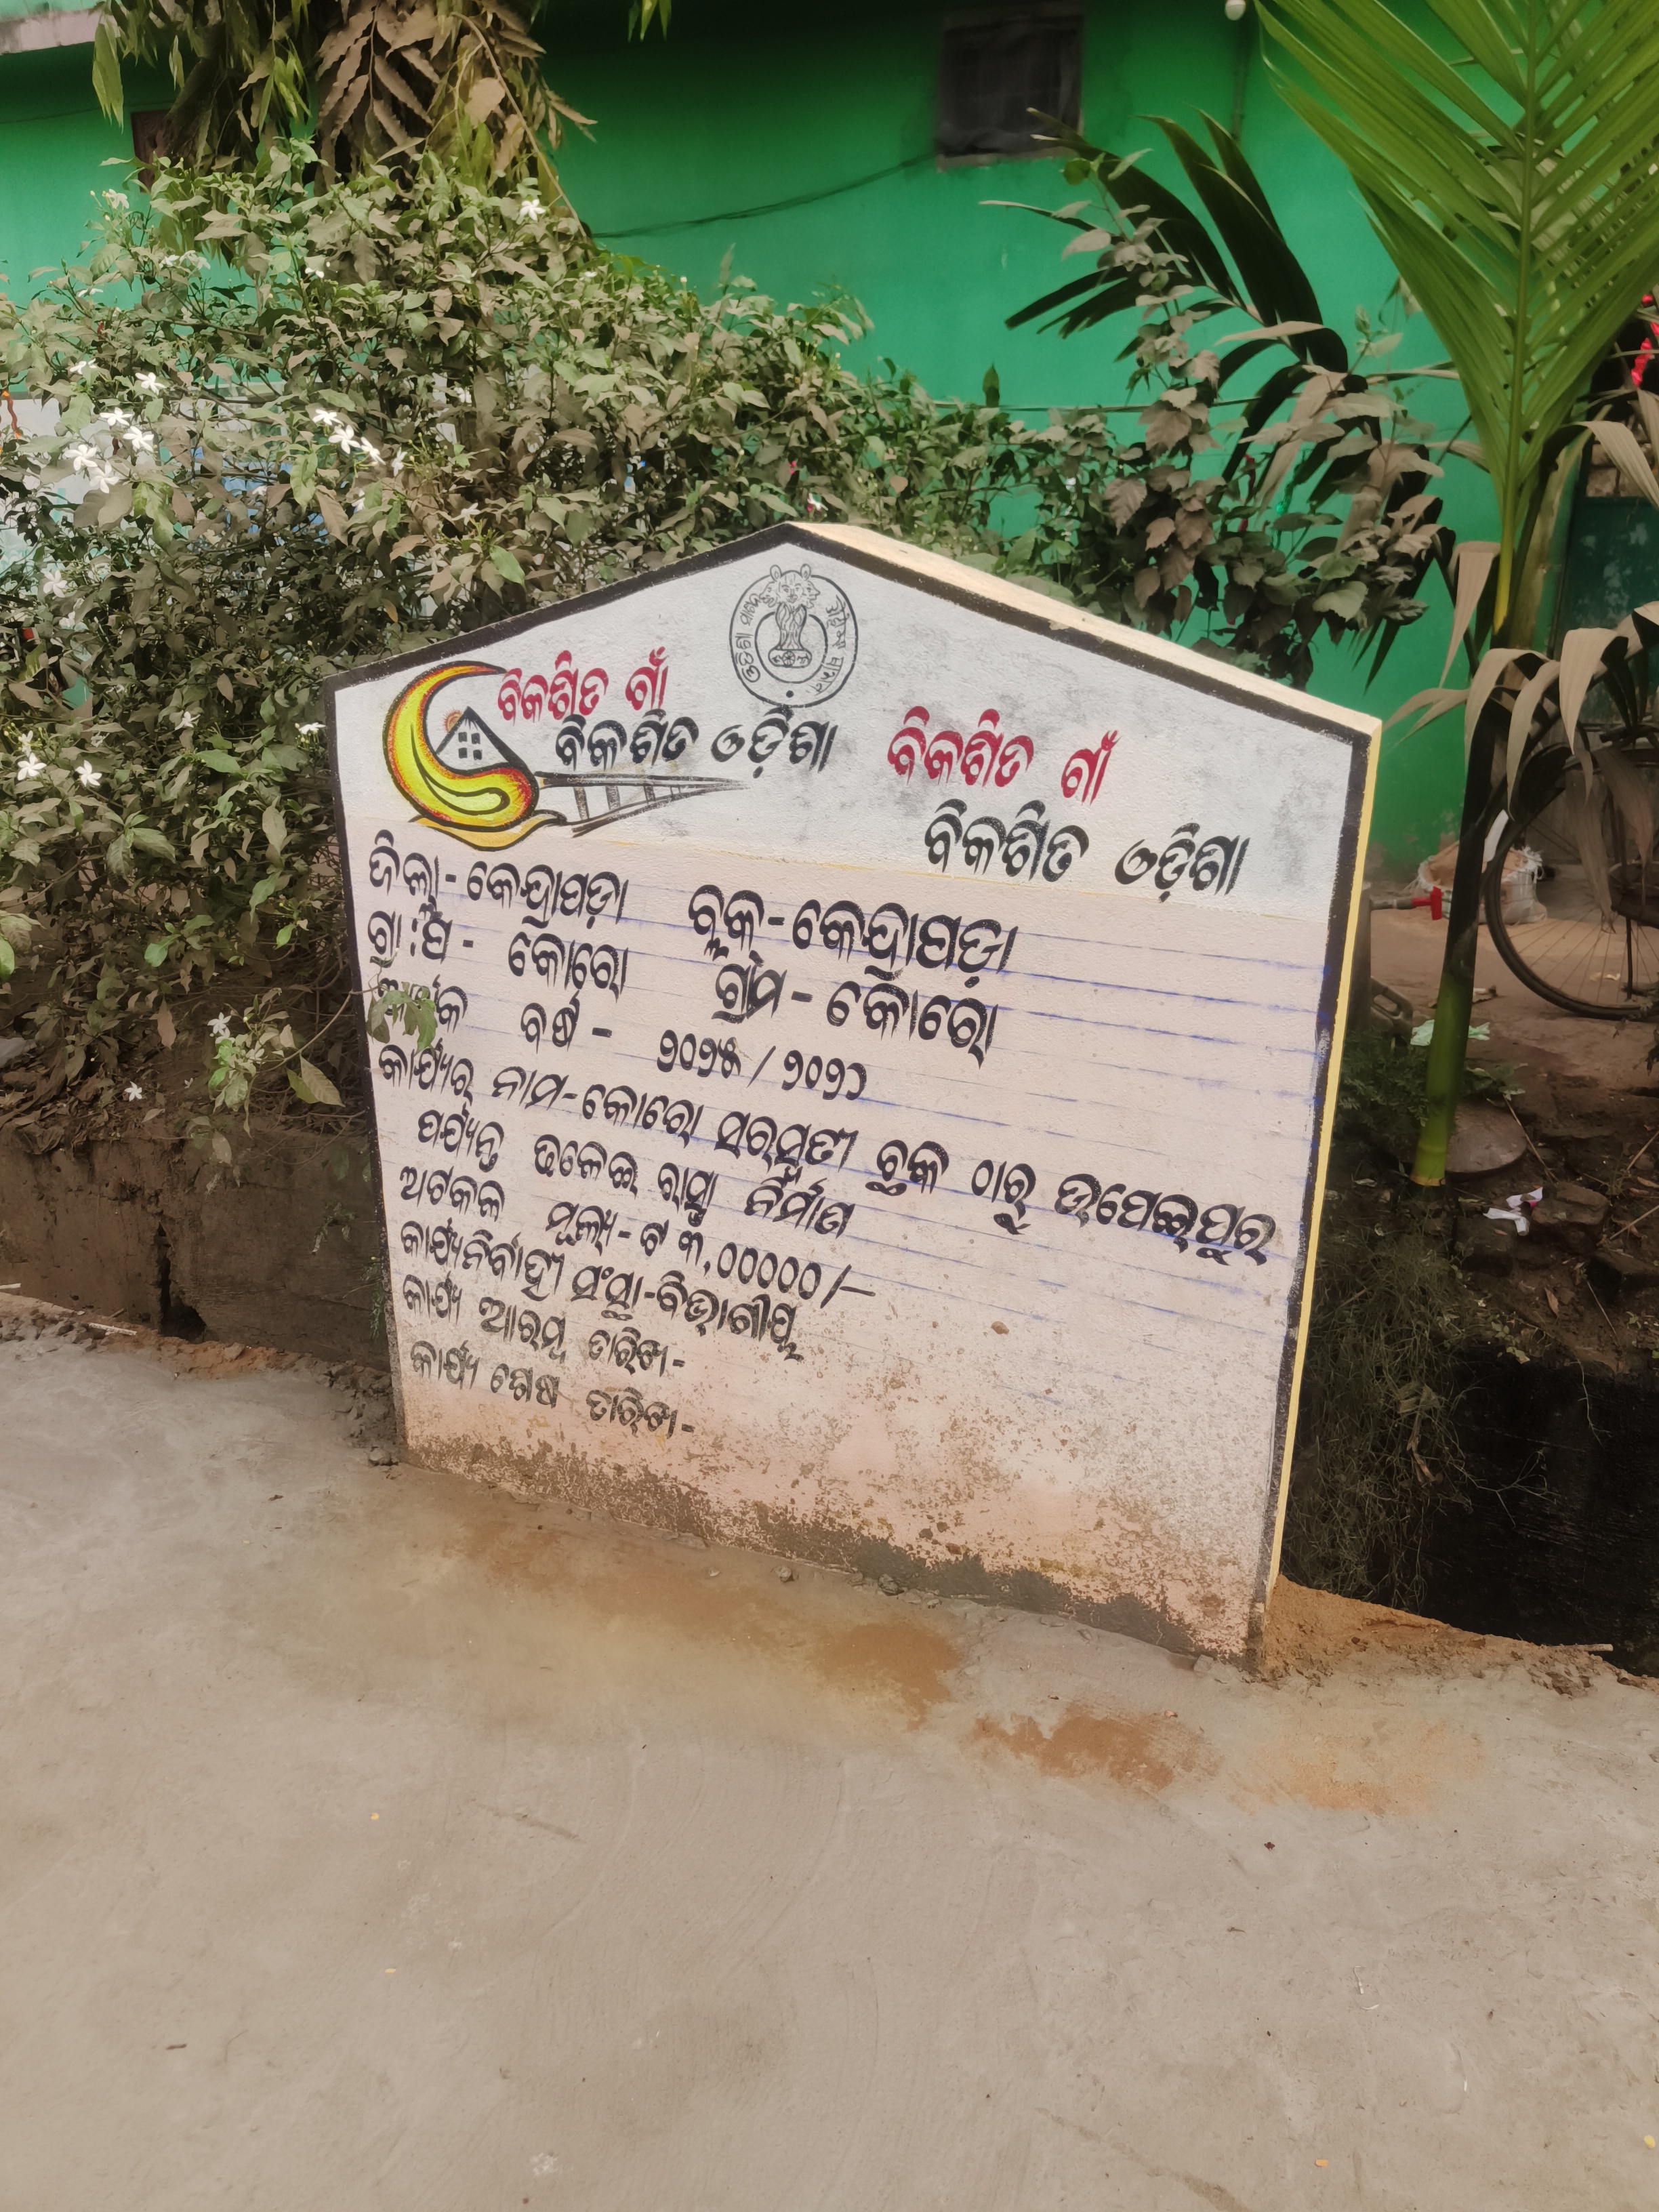 ବିକଶିତ ଗାଁ
ବିକଶିତ ଓଡ଼ିଶା
ବିକଶିତ ଗାଁ
ବିକଶିତ ଓଡ଼ିଶା
ଜିଲ୍ଲା - କେନ୍ଦ୍ରାପଡ଼ା ବ୍ଲକ୍ - କେନ୍ଦ୍ରାପଡ଼ା
ଗ୍ରା:ପ - କୋରୋ ଗ୍ରାମ - କୋରୋ
ବର୍ଷ - ୨୦୨୫ / ୨୦୨୬
କାର୍ଯ୍ୟର ନାମ - କୋରୋ ସରସ୍ୱତୀ ଚ୍ଛକି ଠାରୁ ଉପେଇପୁର
ପର୍ଯ୍ୟନ୍ତ ଢଳେଇ ରାସ୍ତା ନିର୍ମାଣ
ଅଟକଳ ମୂଲ୍ୟ - ଟ ୩,୦୦୦୦୦/-
କାର୍ଯ୍ୟନିର୍ବାହୀ ସଂସ୍ଥା - ବିଭାଗୀୟ
କାର୍ଯ୍ୟ ଆରମ୍ଭ ତାରିଖ -
କାର୍ଯ୍ୟ ଶେଷ ତାରିଖ -